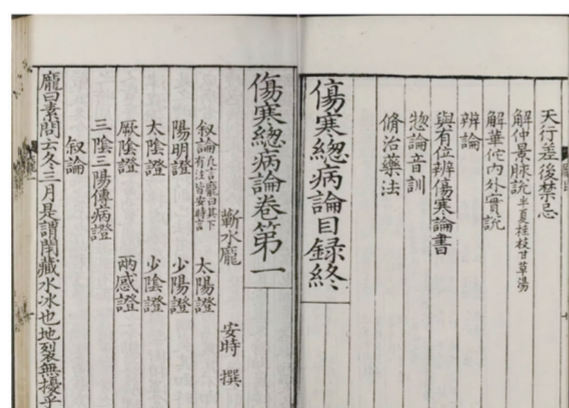 天行差後禁忌
解仲景脉說半夏桂枝甘草湯
解華佗内外實說
辨論
與有位辨傷寒論書
惣論音訓
脩治藥法
傷寒總病論目録終
傷寒總病論卷第一
蘄水龐　安時　撰
叙論凡言龐曰其下有注皆安時言　太陽證
陽明證　少陽證
太陰證　少陰證
厥陰證　兩感證
三陰三陽傳病證
叙論
龐曰素問云冬三月是謂閉藏水冰地裂無擾乎